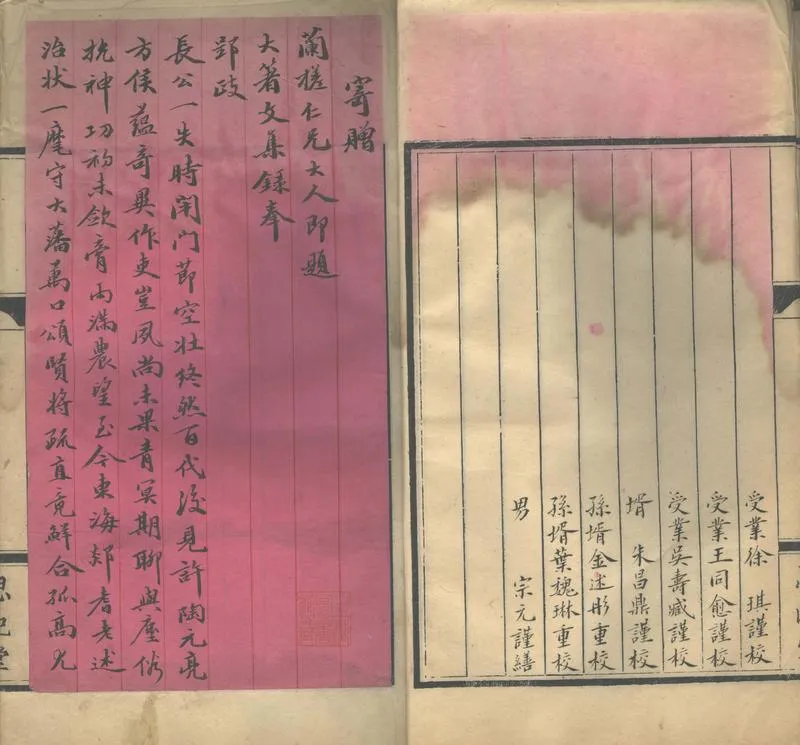 受業徐　琪謹校
受業王同愈謹校
受業吳壽臧謹校
壻　朱昌鼎謹校
孫壻金述彤重校
孫壻葉魏琳重校
男　宗元謹繕
寄贈
蘭槎仁兄大人即題
大箸文集錄奉
郢政
長公一失時閉門節空壯終然百代後見許陶元亮
方侯蘊奇異作吏豈夙尚未果青冥期聊與塵俗
抗神功初未斂膏雨滿農望至今東海郯耆老述
治狀一麾守大藩萬口頌賢將疏直竟鮮合孤高